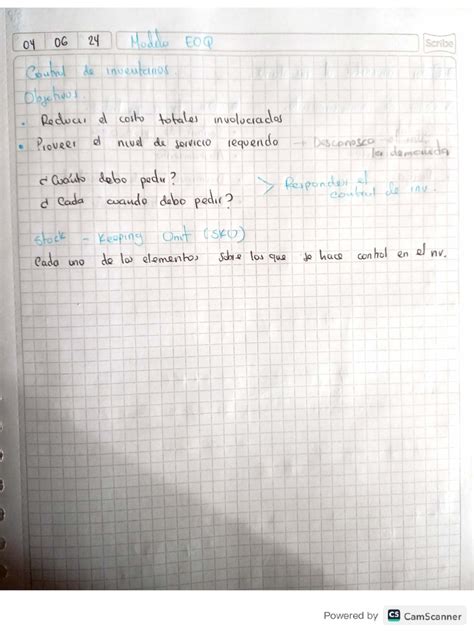 04 06 24 Modelo EOQ
Scribe
Control de inventarios.
Objetivos.
• Reducir el costo totales involucrados
• Proveer el nivel de servicio requerido → Desconosco el
la demanda
¿Cuánto debo pedir?
¿Cada cuando debo pedir?
> Responder el
control de inv.
Stock - Keeping Unit (SKU)
Cada uno de los elementos sobre los que se hace control en el nv.
Powered by CS CamScanner